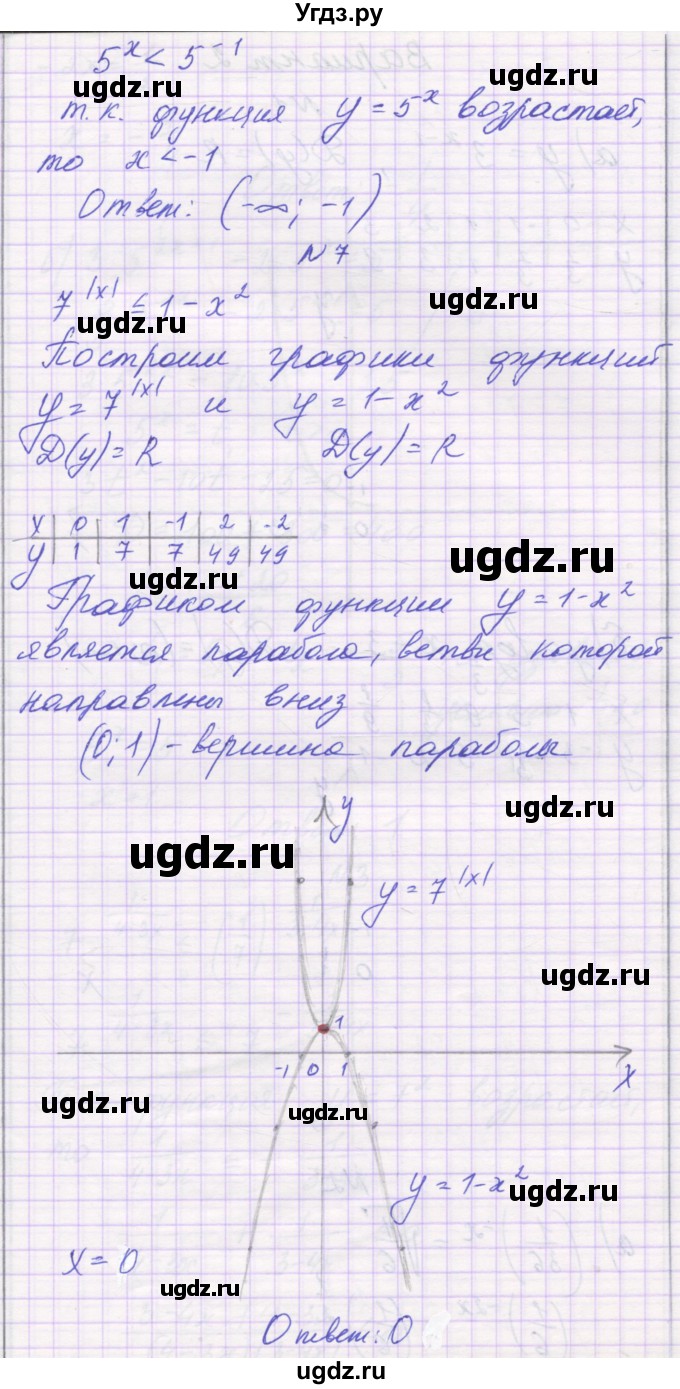 Угдз.ру
5^x < 5^-1
ugdz.ru ugdz.ru
т.к. функция y = 5^x возрастает,
то x < -1
Ответ: (-∞; -1)
N 7
7^|x| ≤ 1 - x^2
ugdz.ru ugdz.ru
Построим графики функций
y = 7^|x| и y = 1 - x^2
D(y) = R D(y) = R
x | 0 | 1 | -1 | 2 | -2
y | 1 | 7 | 7 | 49 | 49
ugdz.ru ugdz.ru
Графиком функции y = 1-x^2
является парабола, ветви которой
направлены вниз
(0; 1) - вершина параболы
y
ugdz.ru ugdz.ru
y = 7^|x|
ugdz.ru
1
-1 0 1
x
ugdz.ru ugdz.ru
y = 1-x^2
ugdz.ru
x = 0
ugdz.ru ugdz.ru
Ответ: 0
ugdz.ru